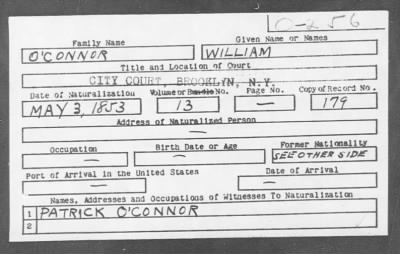 O-256
Family Name Given Name or Names
O'CONNOR WILLIAM
Title and Location of Court
CITY COURT, BROOKLYN, N.Y.
Date of Naturalization Volume or Bundle No. Page No. Copy of Record No.
MAY 3, 1853 13 — 179
Address of Naturalized Person
—
Occupation Birth Date or Age Former Nationality
— — SEE OTHER SIDE
Port of Arrival in the United States Date of Arrival
— —
Names, Addresses and Occupations of Witnesses To Naturalization
1 PATRICK O'CONNOR
2